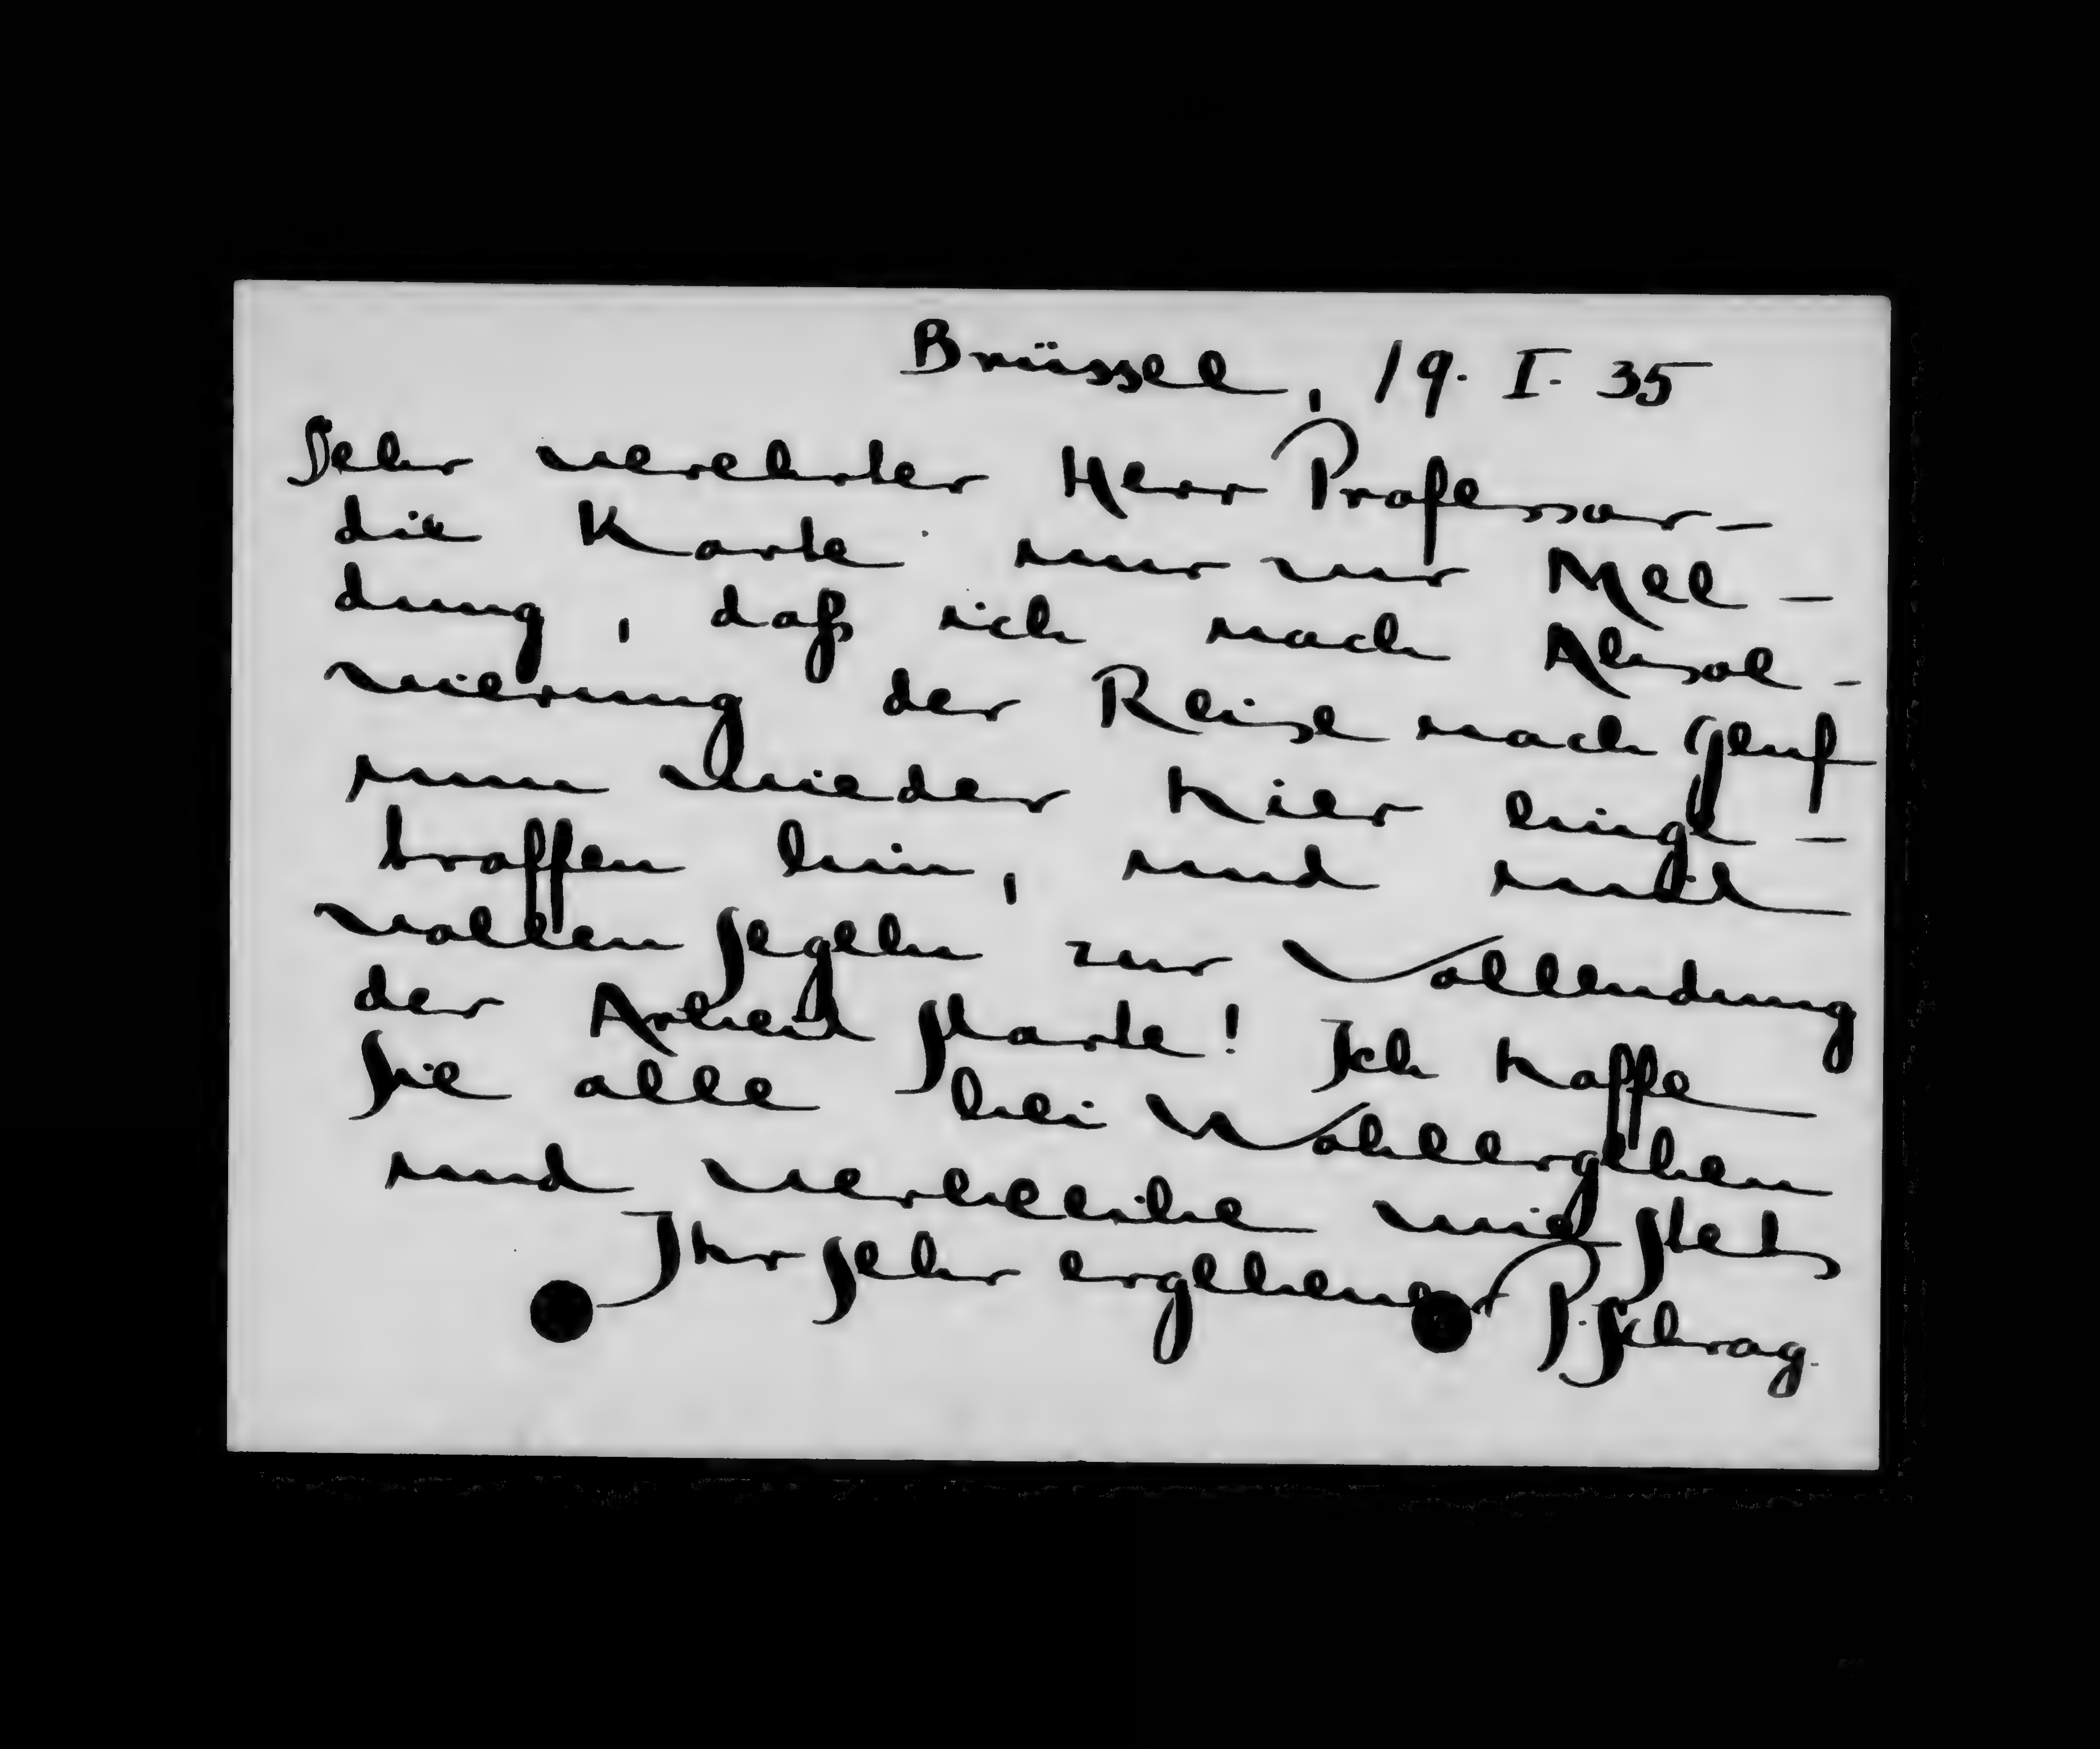 Brüssel, 19. I. 35
Sehr verehrter Herr Professor –
die Karte nur zur Mel-
dung, daß ich nach Absol-
vierung der Reise nach Genf
nun wieder hier einge-
troffen bin, und mit
vollen Segeln zur Vollendung
der Arbeit starte! Ich hoffe
Sie alle bei Wohlergehen
und verbleibe wie stets
Ihr sehr ergebener P. Schrag.